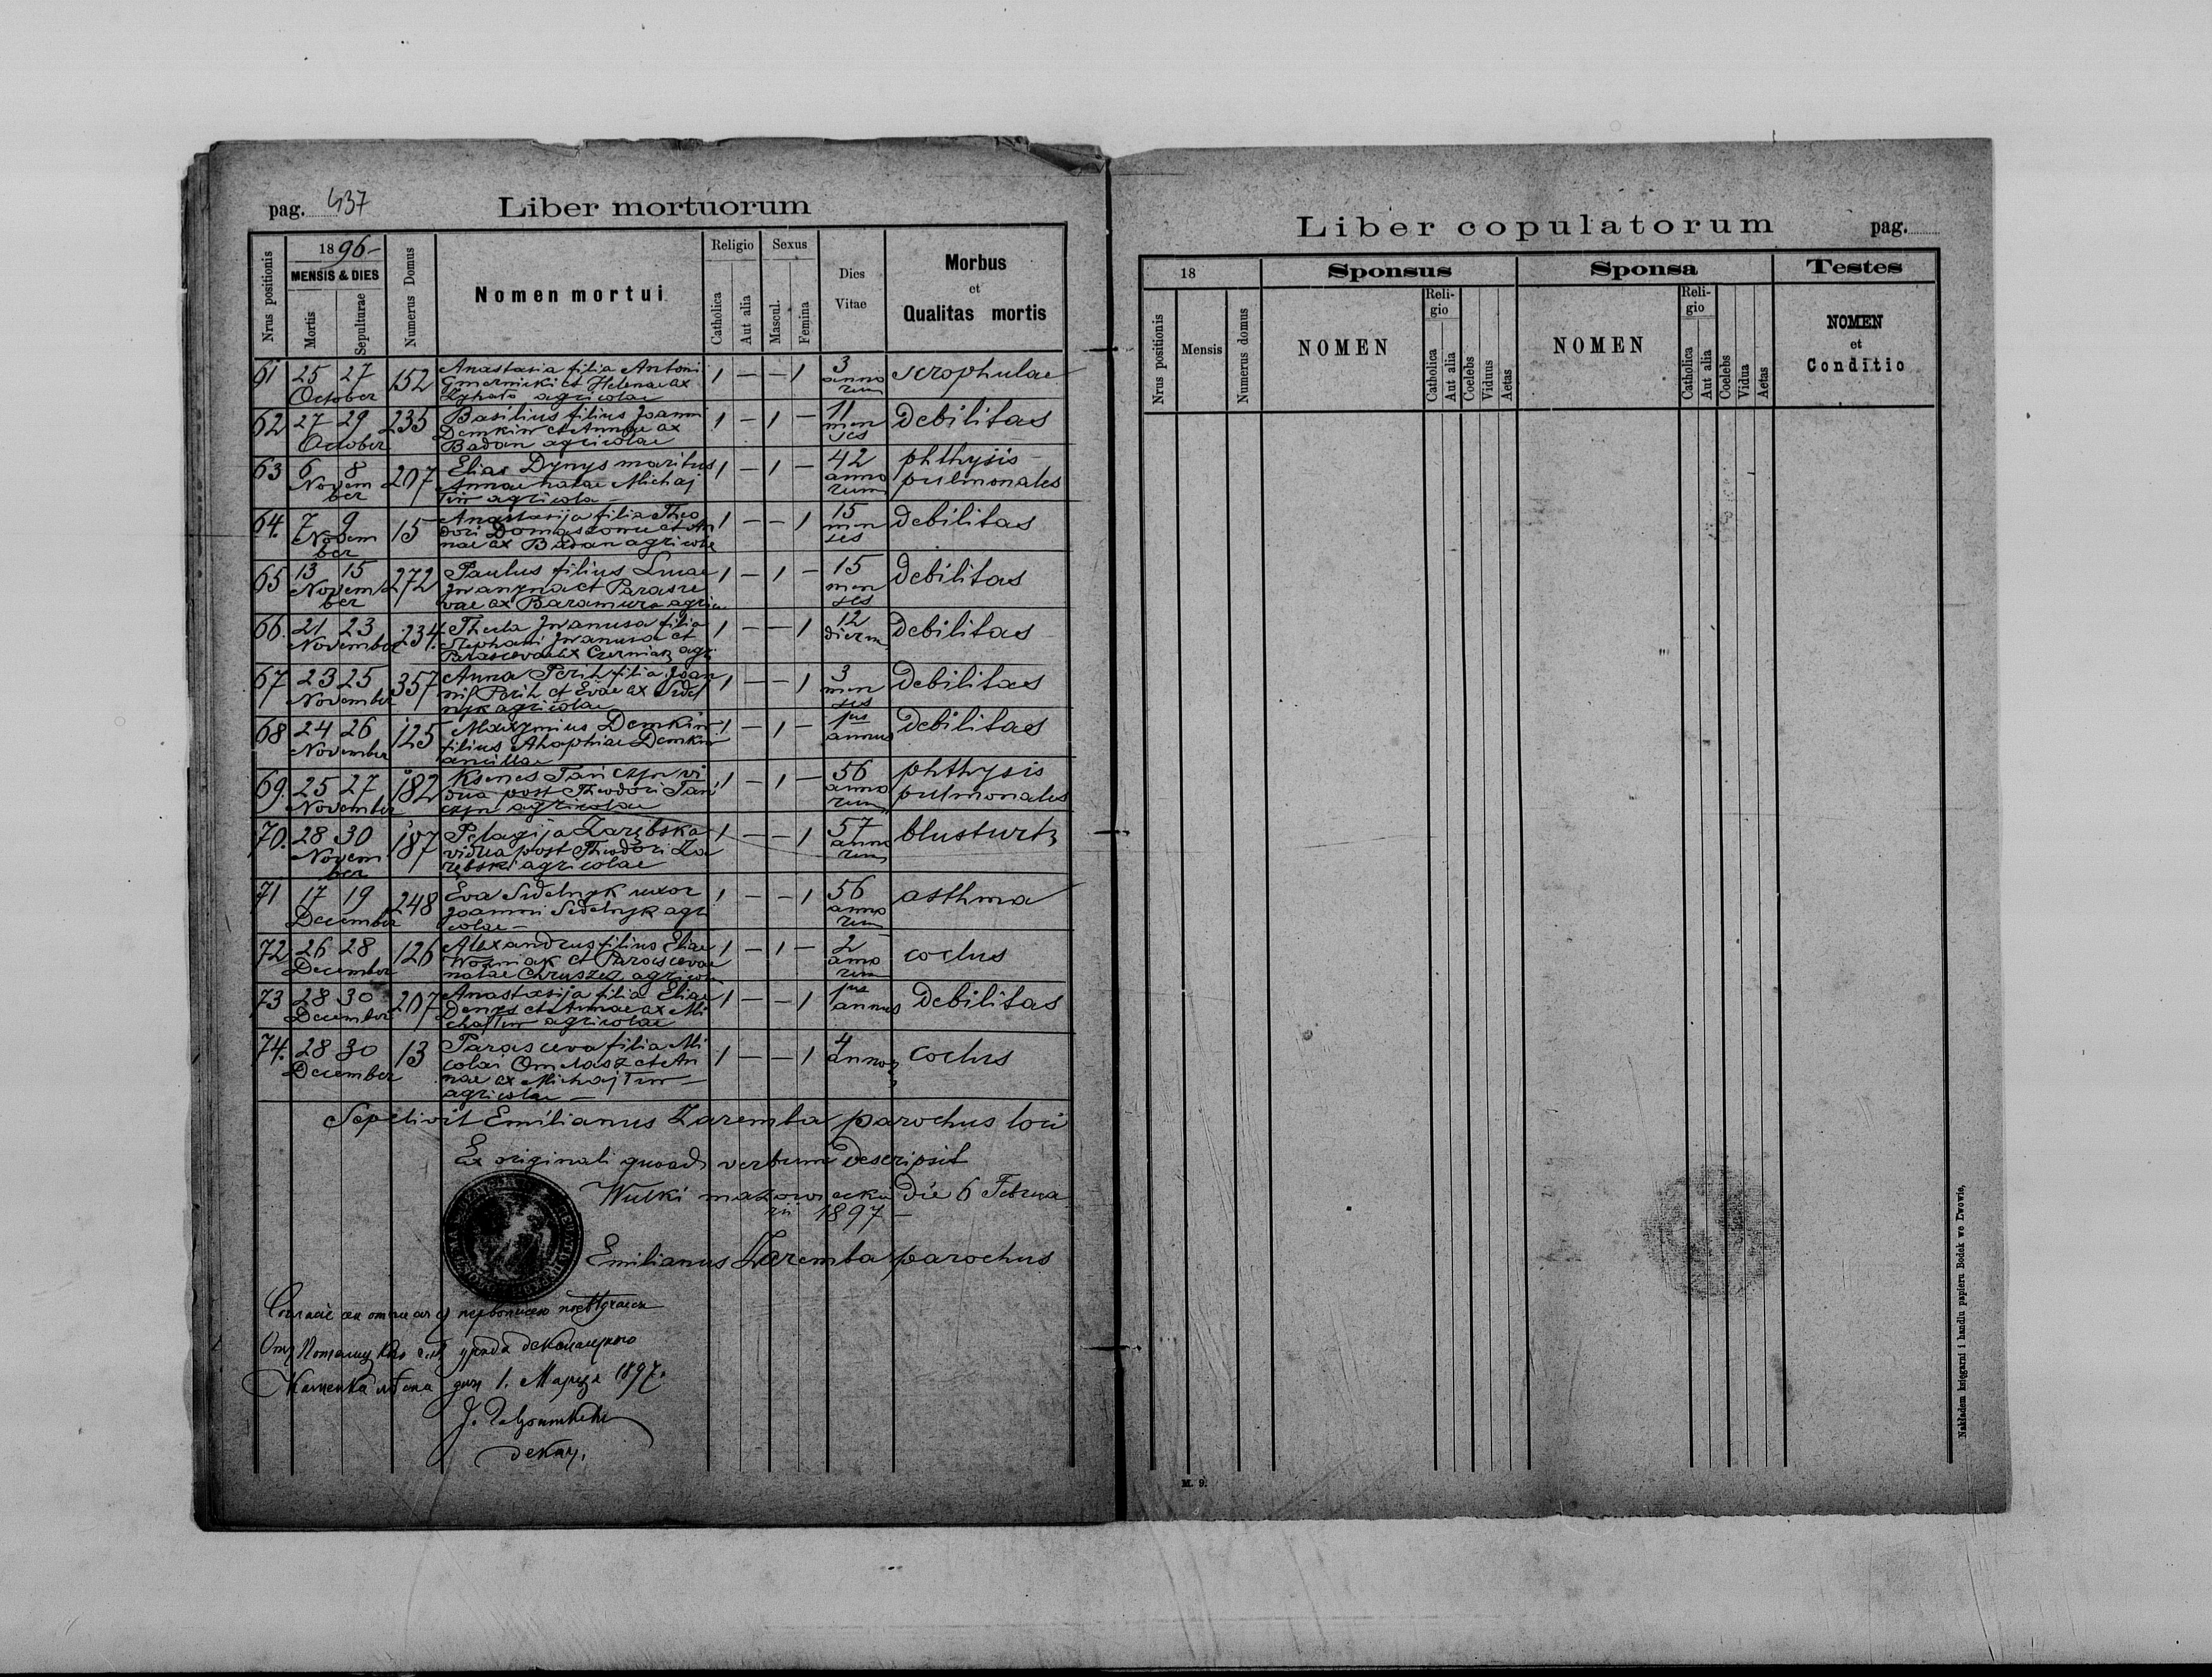 pag. 437
Liber mortuorum
Nrus positionis
1896
MENSIS & DIES
Mortis
Sepulturae
Numerus Domus
Nomen mortui
Religio
Catholica
Aut alia
Sexus
Mascul.
Femina
Dies
Vitae
Morbus
et
Qualitas mortis
61 25 27 October 152 Anastasia filia Antoni
et Helenae ex
agricolae
1 — — 1 3 anno rum scrophulae
62 27 29 October 235 Basilius filius Joanni
Demkiw et Annae ex
Badan agricolae
1 — 1 — 11 men ses debilitas
63 6 8 Novem ber 207 Elias Dynys maritus
Annae natae Michaj
liw agricola
1 — 1 — 42 anno rum phthysis
pulmonales
64. 7 9 Novem ber 15 Anastasija filia Theo
dori et An
nae ex Badan agricolae
1 — — 1 15 men ses debilitas
65 13 15 Novem ber 272 Paulus filius Lucae
Iwanyna et Parasce
vae ex Baramura agric
1 — 1 — 15 men ses debilitas
66. 21 23 November 234. Thecla Iwanusa filia
Stephani Iwanusa et
Parascevae ex Czerniak agri
1 — — 1 12 dierum debilitas
67 23 25 November 357 Anna Perih filia Joan
nis Perih et Evae ex Sidel
nyk agricolae
1 — — 1 3 men ses debilitas
68 24 26 November 125 Maxymius Demkiw
filius Ahaphiae Demkiw
ancillae
1 — 1 — 1us annus debilitas
69. 25 27 November 182 Ksenes Tańczyn vi
dua post Theodori Tań
czyn agricolae
1 — 1 — 56 anno rum phthysis
pulmonales
70. 28 30 Novem ber 187 Pelagija Zarębska
vidua post Theodori Za
rębski agricolae
1 — — 1 57 anno rum blusturtz
71 17 19 December 248 Eva Sidelnyk uxor
Joanni Sidelnyk agri
colae —
1 — — 1 56 anno rum asthma
72 26 28 December 126 Alexandrus filius Eliae
Wozniak et Parascevae
natae Chruszcz agricolae
1 — 1 — 2 anno rum coclus
73 28 30 December 207 Anastasija filia Eliae
Denys et Annae ex Mi
chajliw agricolae
1 — — 1 1us annus debilitas
74. 28 30 December 13 Parasceva filia Mi
colai Omelasz et An
nae ex Michajliw —
agricolae —
1 — — 1 4 coclus
Sepelivit Emilianus Zaremba parochus loci
Ex originali quoad verbum descripsit
Wulki mazowiecka die 6 Februa
rii 1897 —
Emilianus Zaremba parochus
уряда деканального
Каменка дня 1. Марца 1897.
декан.
Liber copulatorum
pag.
18
Nrus positionis
Mensis
Numerus domus
Sponsus
NOMEN
Religio
Catholica
Aut alia
Coelebs
Viduus
Aetas
Sponsa
NOMEN
Religio
Catholica
Aut alia
Coelebs
Vidua
Aetas
Testes
NOMEN
et
Conditio
M. 9.
Nakładem księgarni i handlu papieru Bodek we Lwowie,